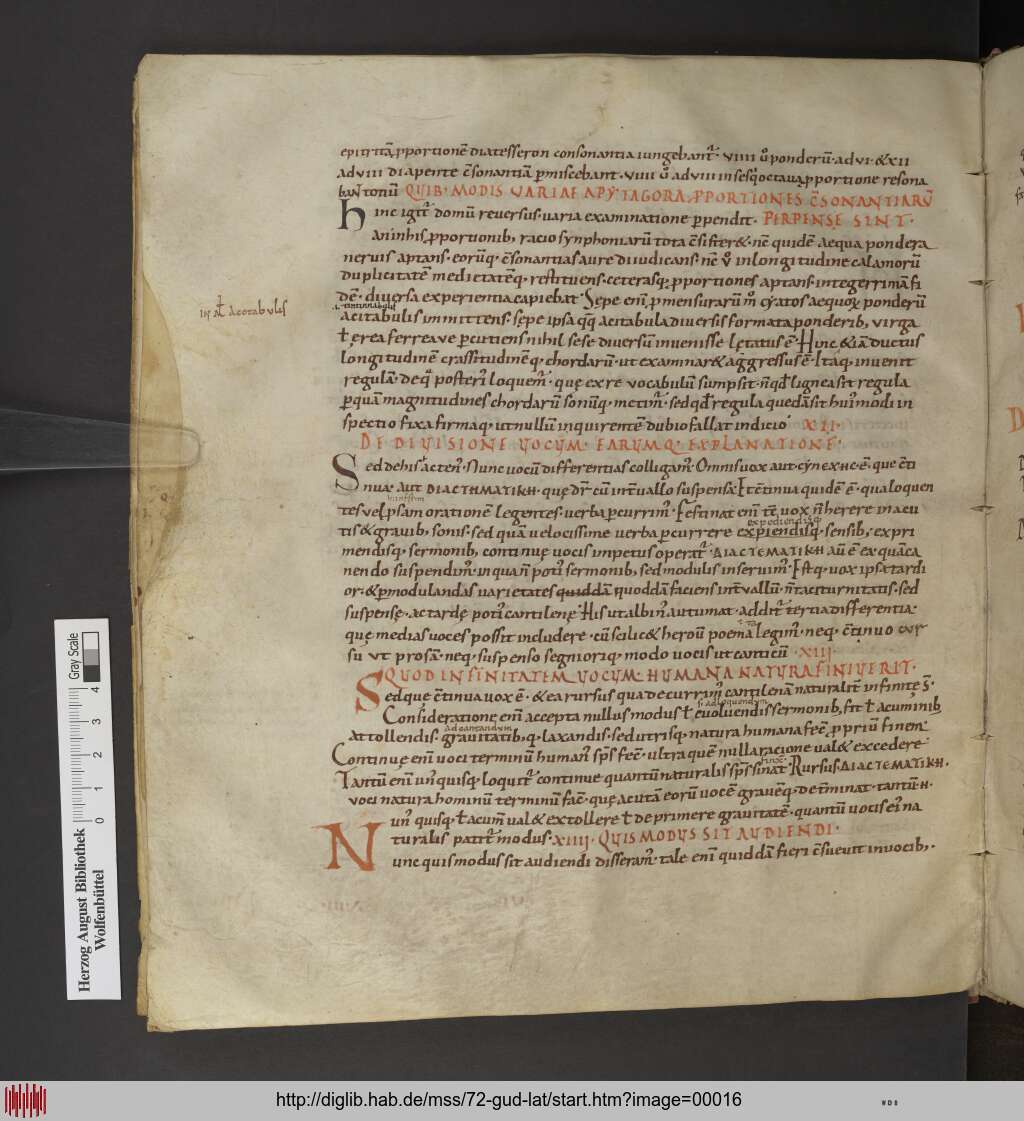 epitritā p̱portionē diatesseron consonantia iungebant͛· VIIII ů ponderū· ad VI· & XII
ad VIII diapente c̄sonantiā p̱miscebant· VIIII ů ad VIII in sesq̇octaua p̱portione resona
bant tonū QUIB· MODIS VARIAE A PYTAGORA P̱PORTIONES C̄SONANTIARŪ
hinc igit͛ domū reuersus· uaria examinatione p̱pendit· PERPENSE SINT·
an in his p̱portionib; racio symphoniarū tota c̄sister&· nc̄ quidē aequa pondera
neruis aptans· eorūq· c̄sonantias aure diiudicans· nc̄ ů in longitudine calamorū
duplicitatē medietatēq· restituens· ceterasq· p̱portiones aptans· integerrimā fi
dē· diuersa experientia capiebat· Sepe enī p̱ mensurarū m̊ cyatos aequoꝝ ponderū
ł in acotabulis
acitabulis immittens· sepe ipsa qq̄ acitabula diuersis formata ponderib; uirga
ł erea ferreaue p̱cutiens nihil sese diuersū inuenisse lętatus ē· Hinc &iā ductus
longitudinē crassitudinēq· chordarū· ut examinar& aggressus ē· Itaq· inuenit
regulā· de q̄ posteri͛ loquem͛· quę ex re uocabulū sumpsit· ñ qđ lignea sit regula
p̱ quā magnitudines chordarū sonūq· metim͛· sed qđ regula quedā sit hui͛modi in
spectio fixa firmaq· ut nullū inquirentē dubio fallat indicio XII·
DE DIVISIONE VOCUM· EARUMQ· EXPLANATIONE·
Sed de his acten͛· Nunc uocū differentias colligam͛· Omnis uox aut· CYNEXHC· ē· que c̄ti
nua· aut DIACTHMATIKH· quę dr̄ cū int̄uallo suspensa· Et c̄tinua quidē ē· qua loquen
tes uel p̱sam orationē legentes· uerba p̱currim͛· Festinat enī tc̄ uox ñ herere in acu
tis & grauib; sonis· sed quā uelocissime uerba p̱currere expiendisq· sensib; expri
expediendisq;
mendisq· sermonib; continuę uocis impetus operat͛· DIACTEMATIKH aū ē ea quā ca
nendo suspendim͛· in qua ñ poti͛ sermonib; sed modulis inseruim͛· Estq· uox ipsa tardi
or· & p̱ modulandas uarietates quiddā quoddā faciens int̄uallū· ñ taciturnitatis· sed
suspensę· ac tardę poti͛ cantilenę· His ut albin͛ autumat· addit͛ tertia differentia·
quę medias uoces possit includere· cū scilic& heroū poema legim͛· neq· c̄tinuo cur
su ut prosā· neq· suspenso segniorīq· modo uocis ut canticū· XIII·
QUOD INFINITATEM VOCUM· HUMANA NATURA FINIVERIT·
Sed que c̄tinua uox ē· & ea rursus qua decurrim͛ cantilenā naturalit͛ infinite s̄·
s· ad loquendum
Consideratione enī accepta nullus modus ł euoluendis sermonib; fit ł acuminib;
ad cantandum
attollendis· grauitatib;q· laxandis· sed utrisq· natura humana fec̄ p̱priū finem·
Continuę enī uoci terminū human͛ sps̄ fec̄· ultra quē nulla racione ual& excedere
Tantū enī un͛quisq· loquit͛ continue quantū naturalis sps̄ sinat· Rursus DIACTEMATIKH·
uoci natura hominū terminū fac̄· que acutā eorū uocē grauēq· det̄minat· tantū·n·
un͛ quisq· ł acum̄ ual& extollere ł deprimere grauitatē· quantū uocis ei͛ na
turalis patit͛ modus· XIIII· QUIS MODUS SIT AUDIENDI·
Nunc quis modus sit audiendi disseram͛· tale enī quiddā fieri c̄sueuit in uocib;·
Herzog August Bibliothek
Wolfenbüttel
0 1 2 3 4
Gray Scale
http://diglib.hab.de/mss/72-gud-lat/start.htm?image=00016